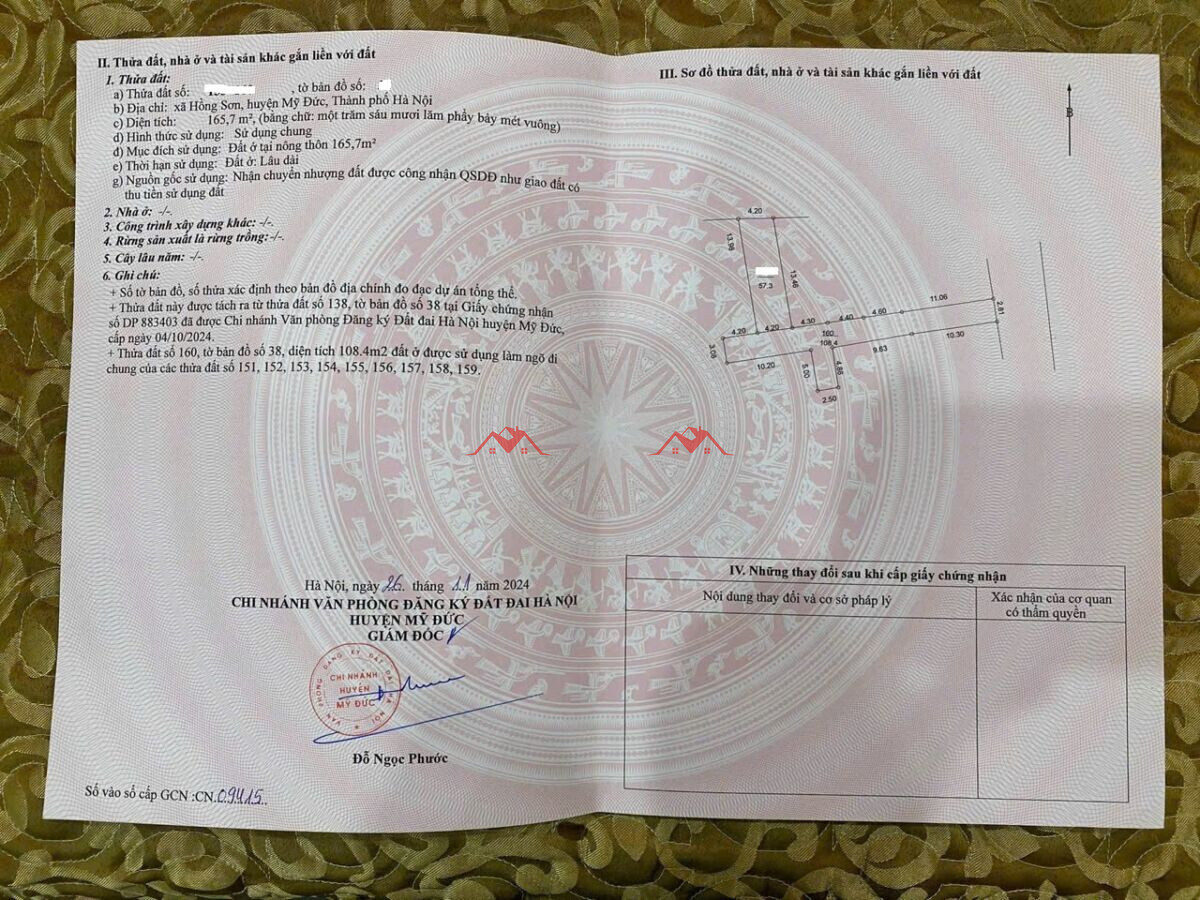 II. Thửa đất, nhà ở và tài sản khác gắn liền với đất
1. Thửa đất:
a) Thửa đất số: , tờ bản đồ số:
b) Địa chỉ: xã Hồng Sơn, huyện Mỹ Đức, Thành phố Hà Nội
c) Diện tích: 165,7 m², (bằng chữ: một trăm sáu mươi lăm phẩy bảy mét vuông)
d) Hình thức sử dụng: Sử dụng chung
đ) Mục đích sử dụng: Đất ở tại nông thôn 165,7m²
e) Thời hạn sử dụng: Đất ở: Lâu dài
g) Nguồn gốc sử dụng: Nhận chuyển nhượng đất được công nhận QSDĐ như giao đất có
thu tiền sử dụng đất
2. Nhà ở: -/-.
3. Công trình xây dựng khác: -/-.
4. Rừng sản xuất là rừng trồng: -/-.
5. Cây lâu năm: -/-.
6. Ghi chú:
+ Số tờ bản đồ, số thửa xác định theo bản đồ địa chính đo đạc dự án tổng thể.
+ Thửa đất này được tách ra từ thửa đất số 138, tờ bản đồ số 38 tại Giấy chứng nhận
số DP 883403 đã được Chi nhánh Văn phòng Đăng ký Đất đai Hà Nội huyện Mỹ Đức,
cấp ngày 04/10/2024.
+ Thửa đất số 160, tờ bản đồ số 38, diện tích 108.4m2 đất ở được sử dụng làm ngõ đi
chung của các thửa đất số 151, 152, 153, 154, 155, 156, 157, 158, 159.
Hà Nội, ngày 26 tháng 11 năm 2024
CHI NHÁNH VĂN PHÒNG ĐĂNG KÝ ĐẤT ĐAI HÀ NỘI
HUYỆN MỸ ĐỨC
GIÁM ĐỐC
VĂN PHÒNG ĐĂNG KÝ ĐẤT ĐAI HÀ NỘI
CHI NHÁNH
HUYỆN
MỸ ĐỨC
Đỗ Ngọc Phước
Số vào sổ cấp GCN :CN.09415.
III. Sơ đồ thửa đất, nhà ở và tài sản khác gắn liền với đất
B
4.20
13.96
13.46
57.3
4.20
4.20
4.30
4.40
4.60
11.06
2.81
3.06
160
108.4
10.20
5.00
4.86
9.63
10.30
2.50
IV. Những thay đổi sau khi cấp giấy chứng nhận
Nội dung thay đổi và cơ sở pháp lý
Xác nhận của cơ quan
có thẩm quyền